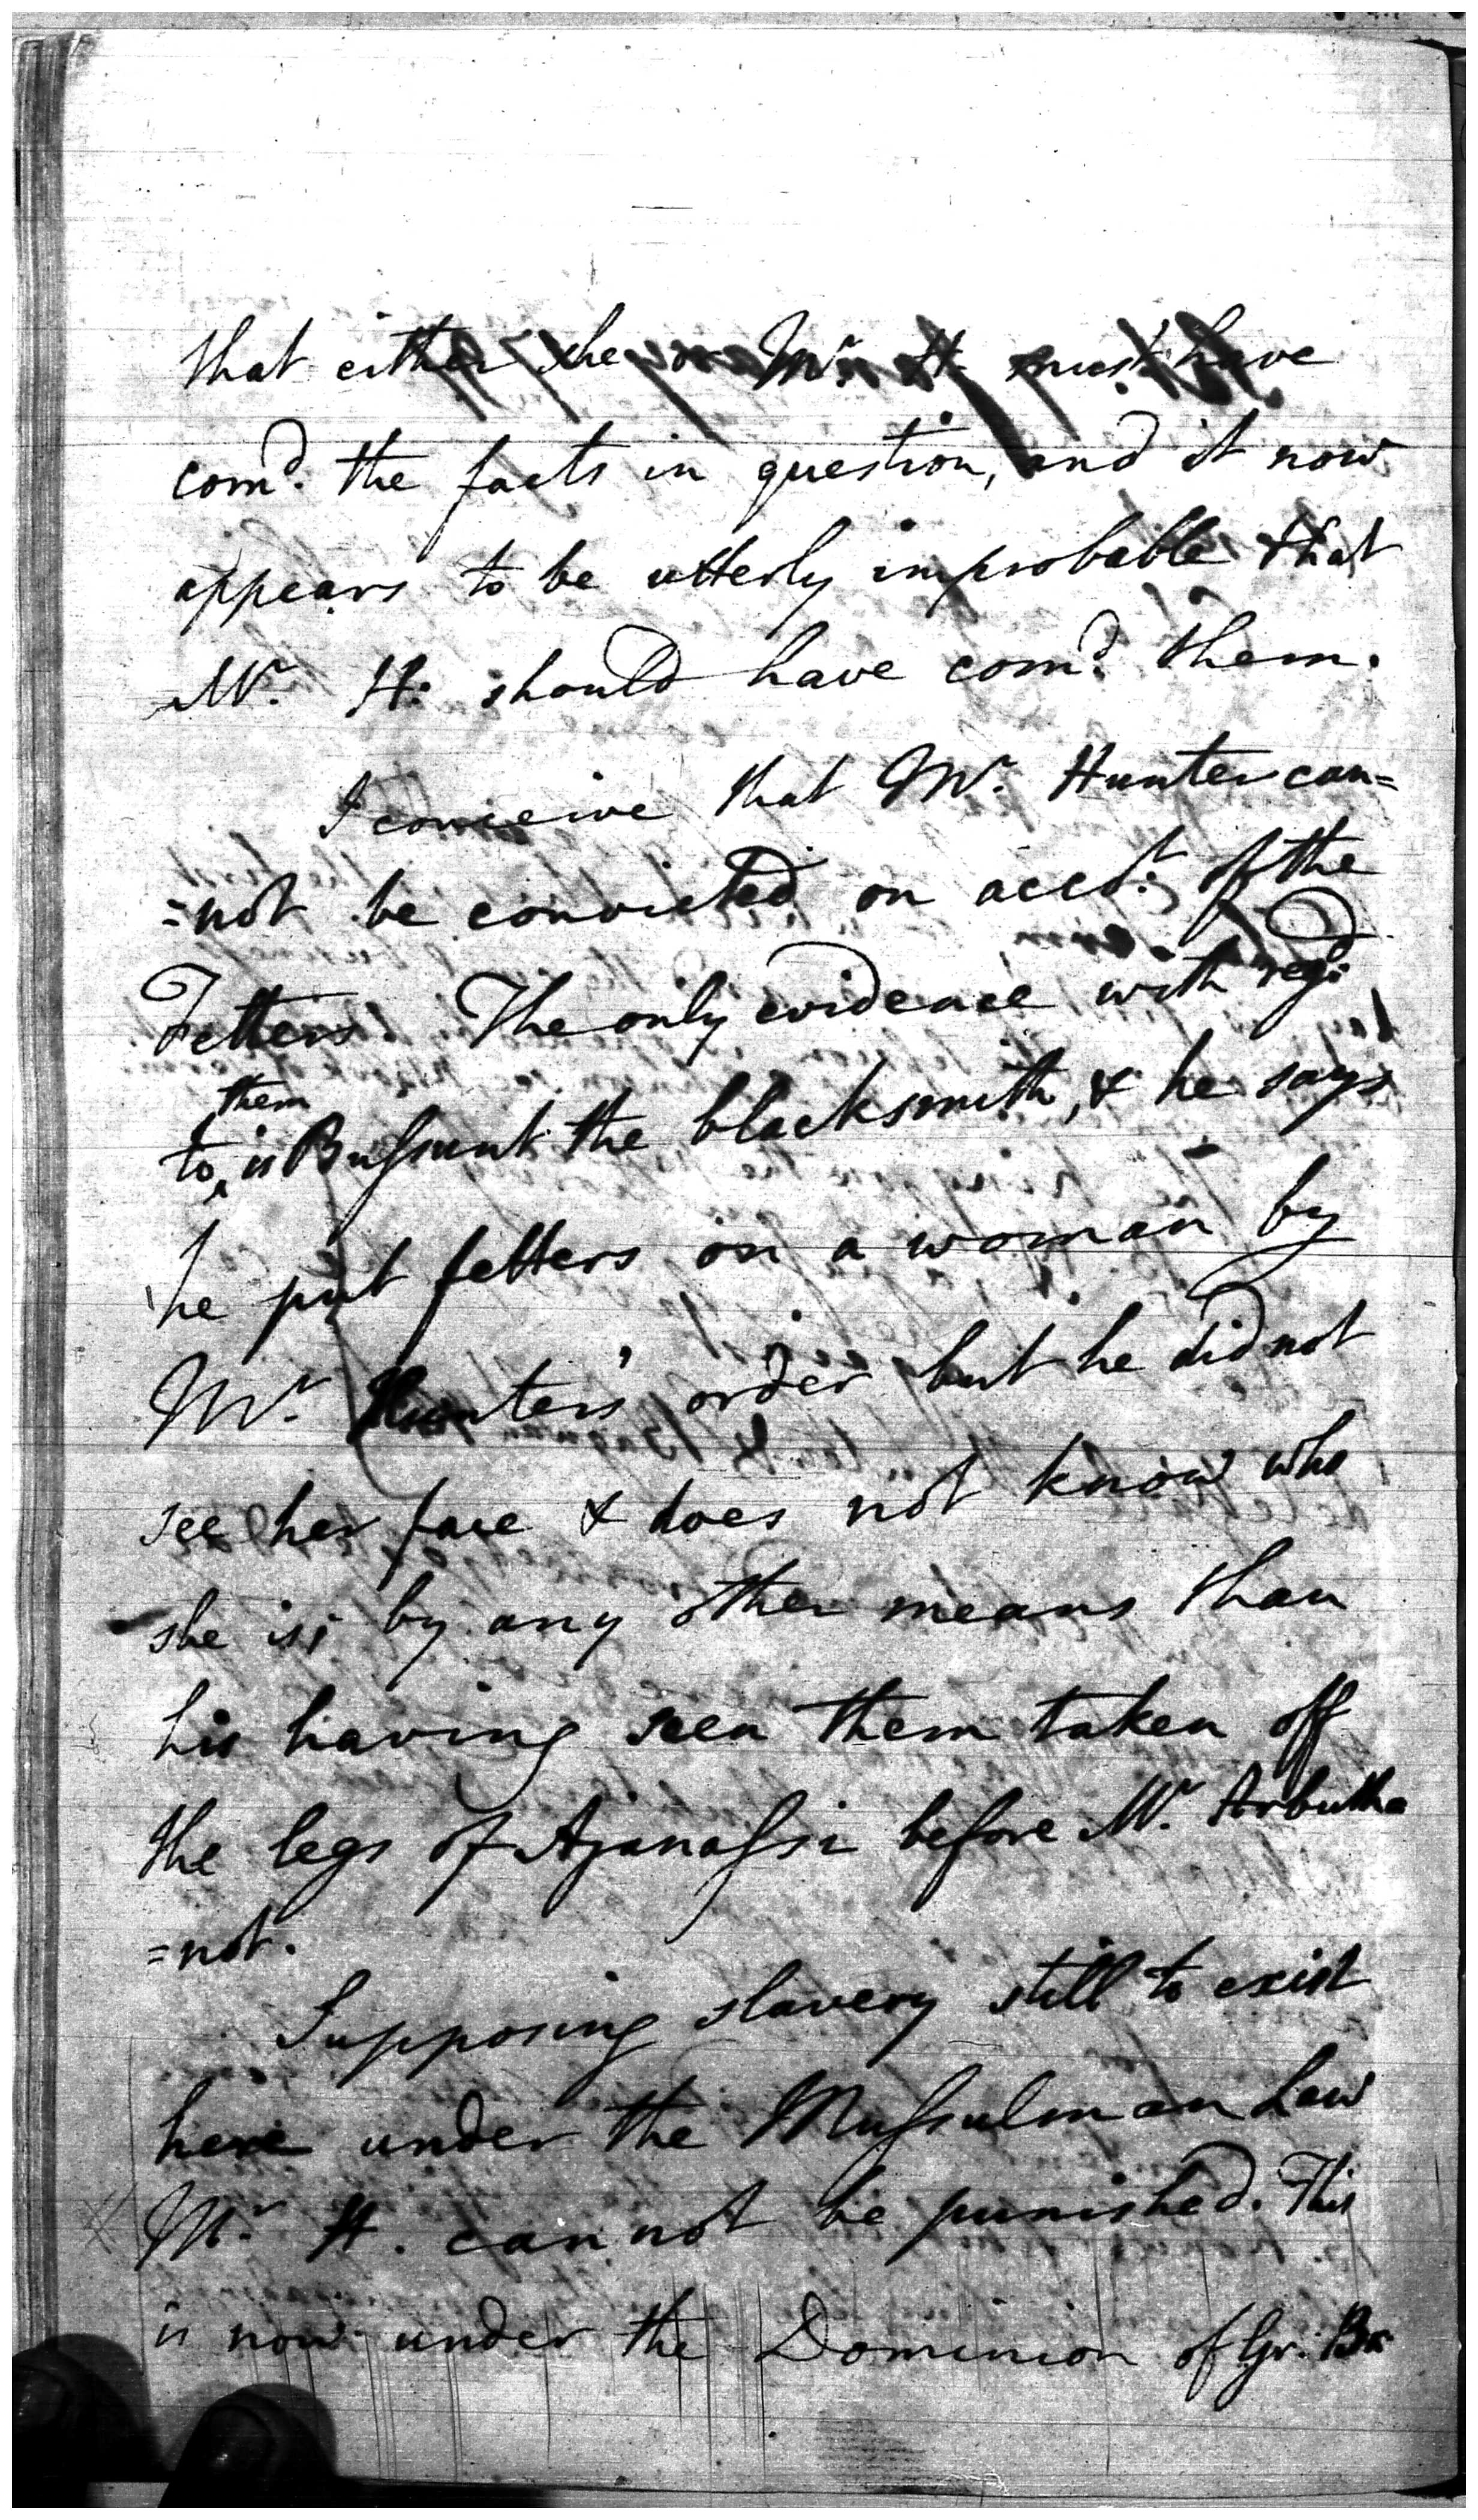 that either she or Mr. H. must have
comd. the facts in question, and it now
appears to be utterly improbable that
Mr. H. should have comd. them.
I conceive that Mr. Hunter can=
=not be convicted on accot. of the
Fetters. The only evidence with regd.
them
to is Bussunt the blacksmith, & he says
he put fetters on a woman by
Mr. Hunters' order but he did not
see her face & does not know who
she is; by any other means than
his having seen them taken off
the legs of Ajanassi before Mr. Arbuth
=not.
Supposing slavery still to exist
here under the Mussulman Law
Mr. H. cannot be punished. This
is now under the Dominion of Gr. Br.